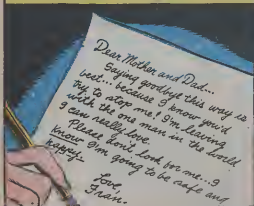 Dear Mother and Dad...
Saying goodbye this way is
best... because I know you'd
try to stop me! I'm leaving
with the one man in the world
I can really love.
Please don't look for me... I
know I'm going to be safe and
happy..
Love,
Fran.